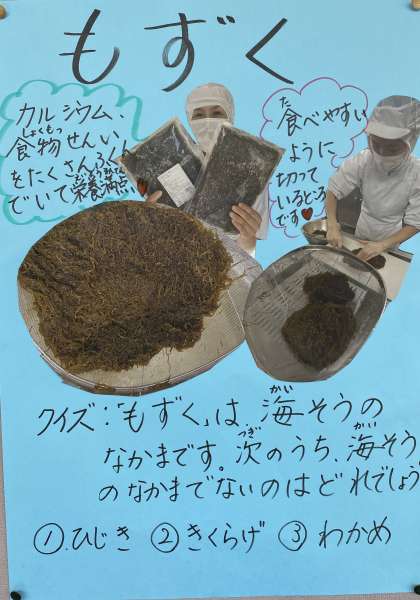 もずく
カルシウム、
しょくもつ
食物せんい
をたくさんふくん
でいて栄養満点、
た
食べやすい
ように
切って
いるところ
です♥
クイズ:「もずく」は、海そうの
かい
なかまです。次のうち、海そう
つぎ
かい
のなかまでないのはどれでしょう
①.ひじき ②きくらげ ③わかめ